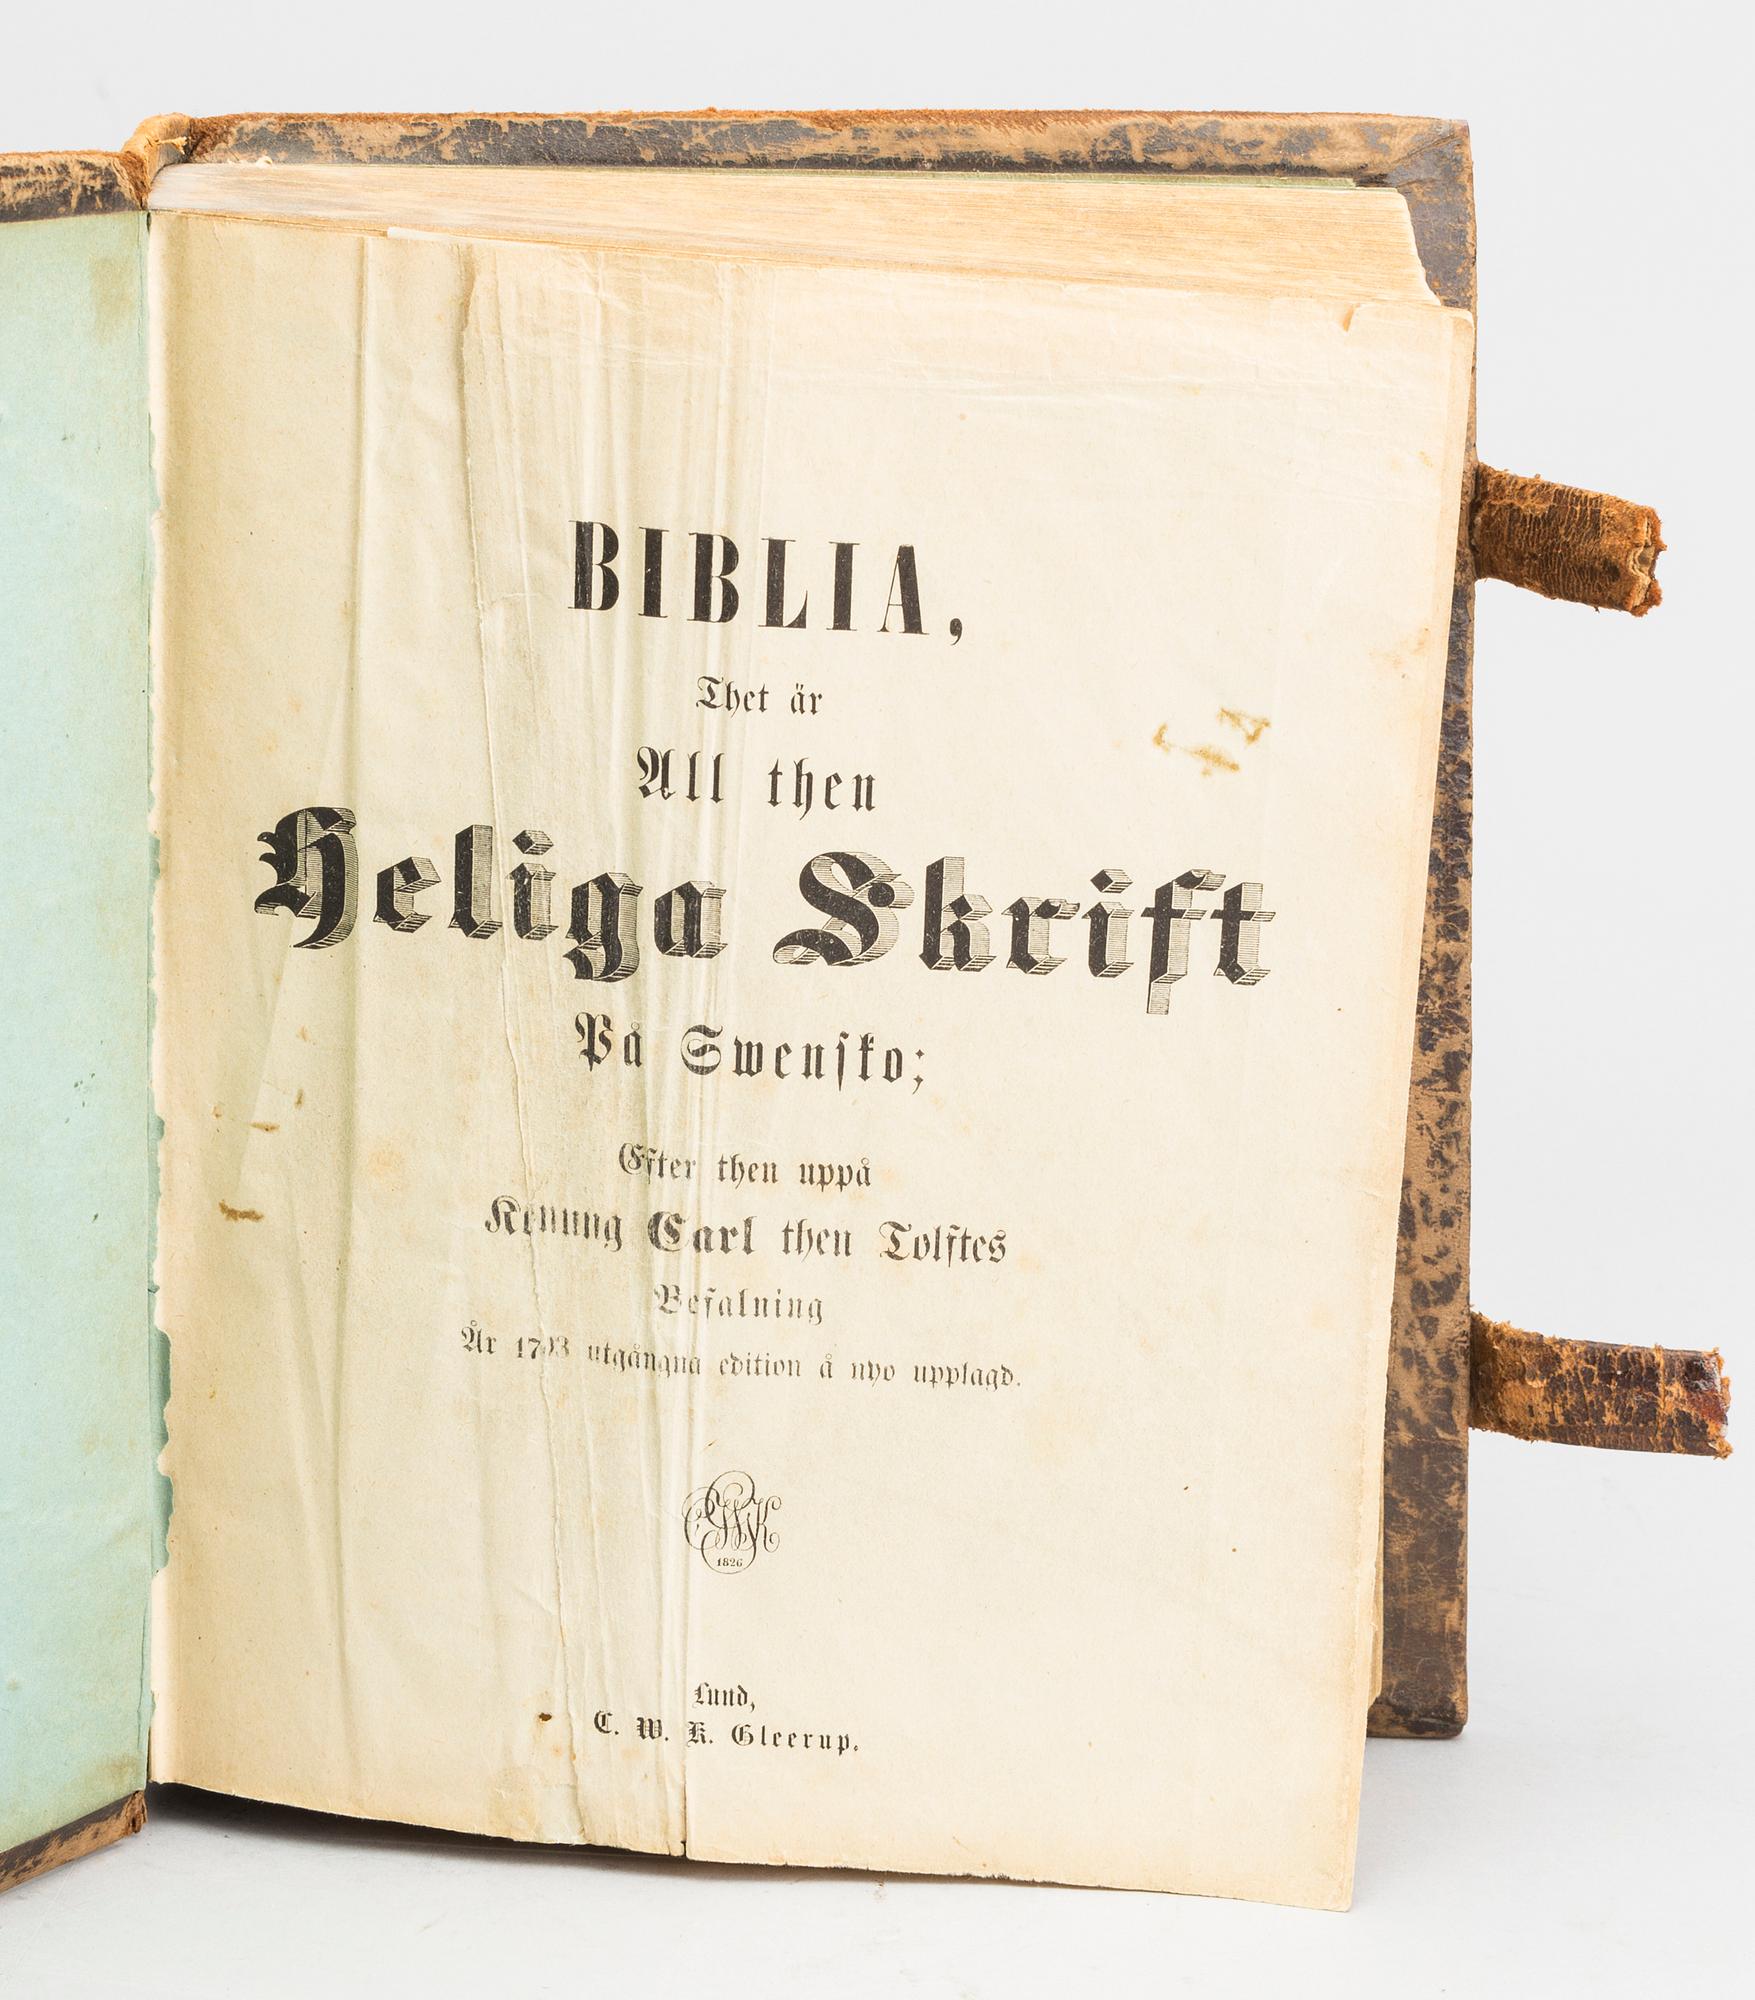 BIBLIA,
Thet är
All then
Heliga Skrift
På Swenſko;
Efter then uppå
Konung Carl then Tolftes
Befalning
År utgångna edition å nyo upplagd.
CWK
1826
Lund,
C. W. K. Gleerup.